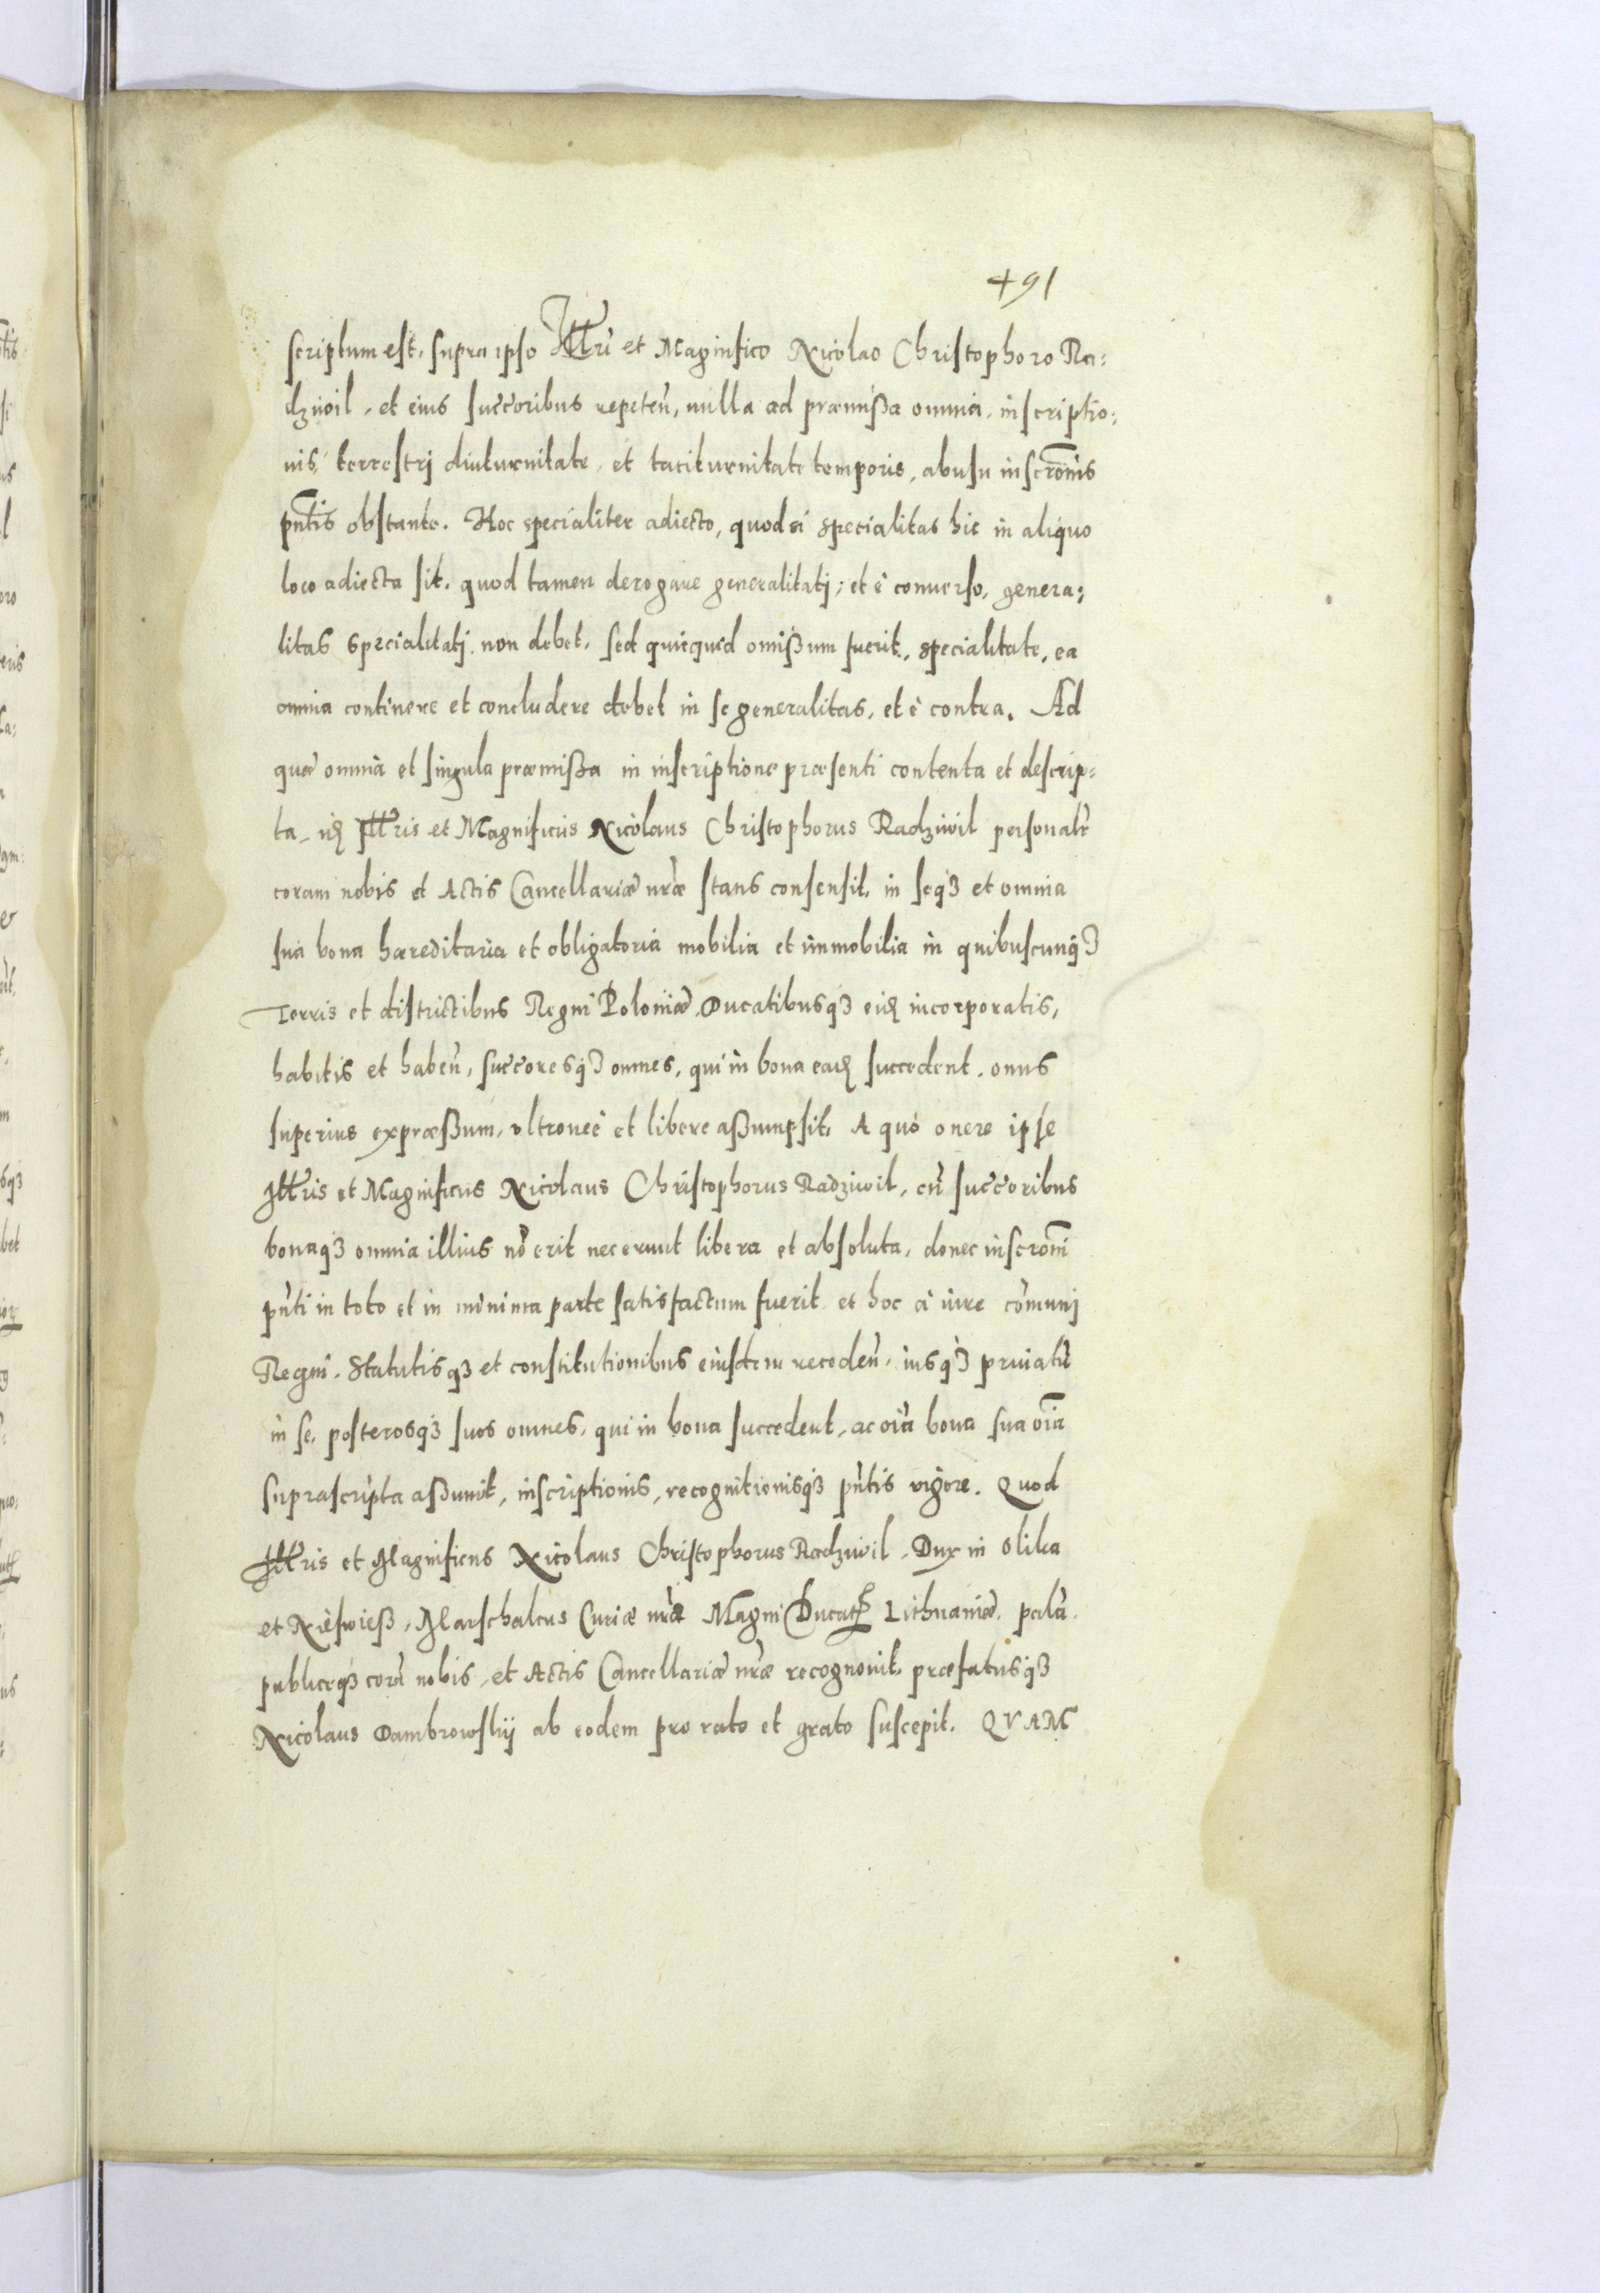 491
scriptum est, supra ipso Illri et Magnifico Nicolao Christophoro Ra:
dziwil, et eius succoribus repeten, nulla ad præmißa omnia, inscriptio:
nis, terrestrj diuturnitate, et taciturnitate temporis, abusu inscronis
pntis obstante. Hoc specialiter adiecto, quod si specialitas hic in aliquo
loco adiecta sit. quod tamen derogare generalitatj, et è conuerso, genera:
litas specialitatj non debet, sed quicquid omißum fuerit, specialitate, ea
omnia continere et concludere debet in se generalitas, et è contra. Ad
quæ omnia et singula præmißa in inscriptione præsenti contenta et descrip:
ta, Illris et Magnificus Nicolaus Christophorus Radziwil personalr
coram nobis et Actis Cancellariæ nræ stans consensit, in seqз et omnia
sua bona hæreditaria et obligatoria mobilia et immobilia in quibuscunqз
Terris et districtibus Regni Poloniæ, Ducatibusqз incorporatis,
habitis et haben, succoresqз omnes, qui in bona succedent, onus
superius expræßum, vltroneè et libere aßumpsit, A quo onere ipse
Illris et Magnificus Nicolaus Christophorus Radziwil, cu succoribus
bonaqз omnia illius nõ erit nec erunt libera et absoluta, donec inscroni
pnti in toto et in minima parte satisfactum fuerit et hoc à iure cõmunj
Regni, Statutisqз et constitutionibus eiusdem receden, iusqз priuatũ
in se, posterosqз suos omnes, qui in bona succedent, ac oia bona sua oia
suprascripta aßumit, inscriptionis, recognitionisqз pntis vigore. Quod
Illris et Magnificus Nicolaus Christophorus Radziwil, Dux in Olika
et Nieswieß, Marschalcus Curiæ nræ Magni Ducatus Lithuaniæ, palã
publiceqз corã nobis, et Actis Cancellariæ nræ recognouit, præfatusqз
Nicolaus Dambrowskij ab eodem pro rato et grato suscepit. QVAM